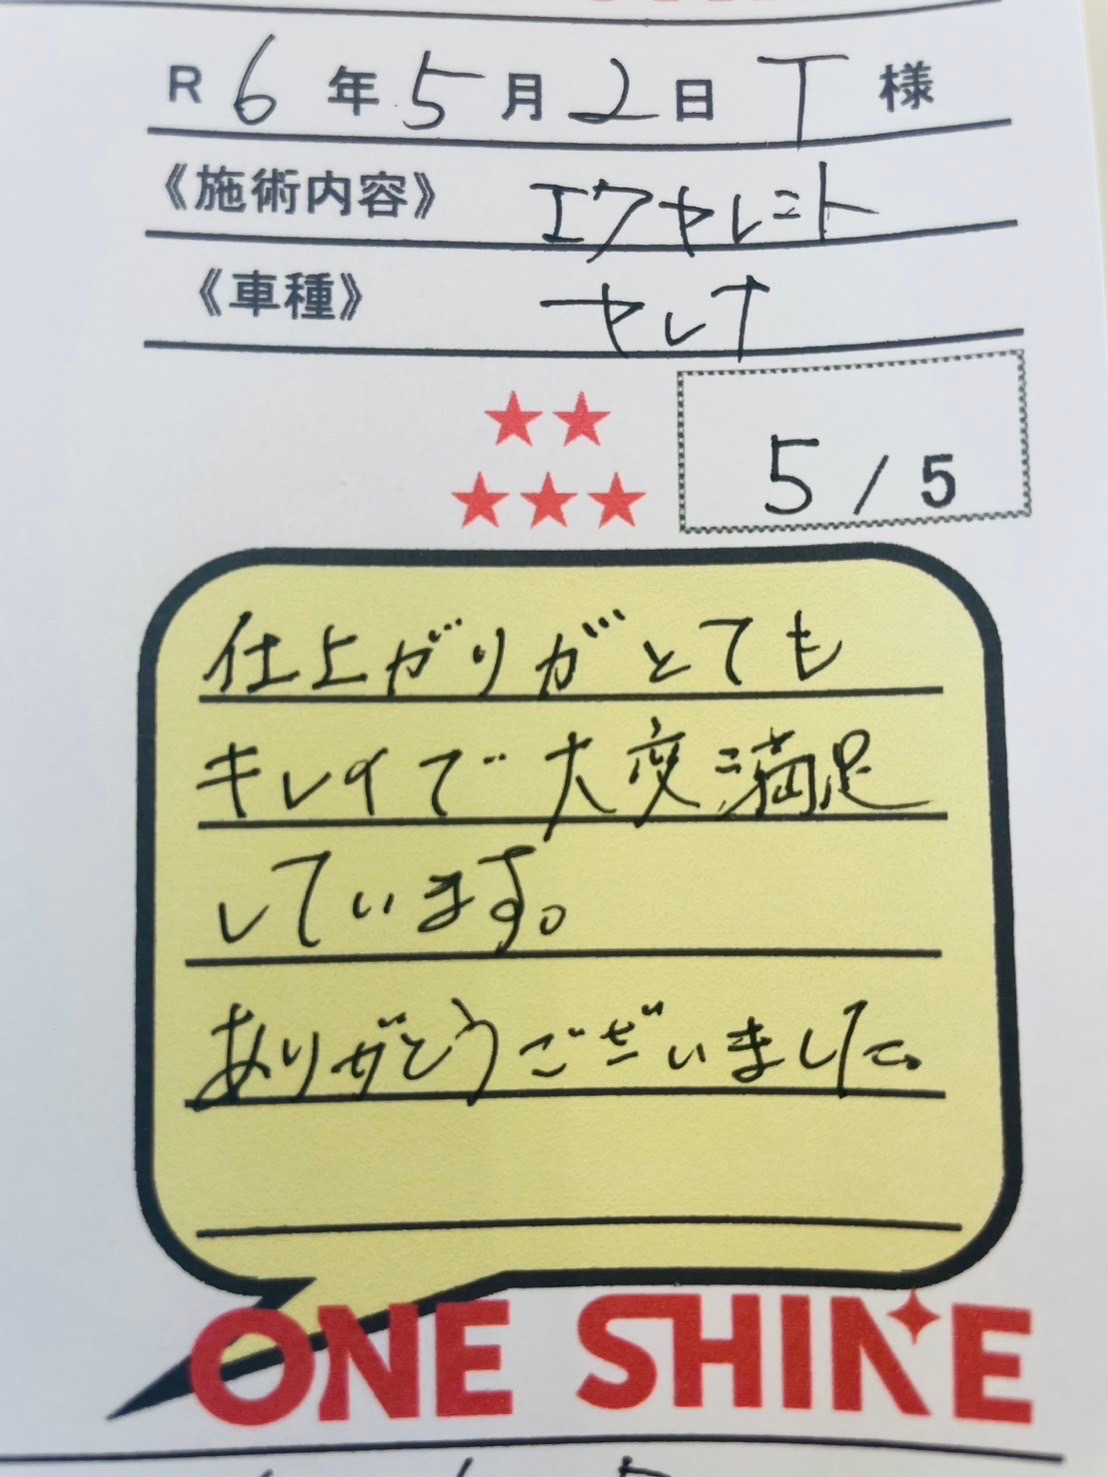 R 6 年 5 月 2 日 T 様
《施術内容》 エクセレント
《車種》 セレナ
5 / 5
仕上がりがとても
キレイで大変満足
しています。
ありがとうございました。
ONE SHINE